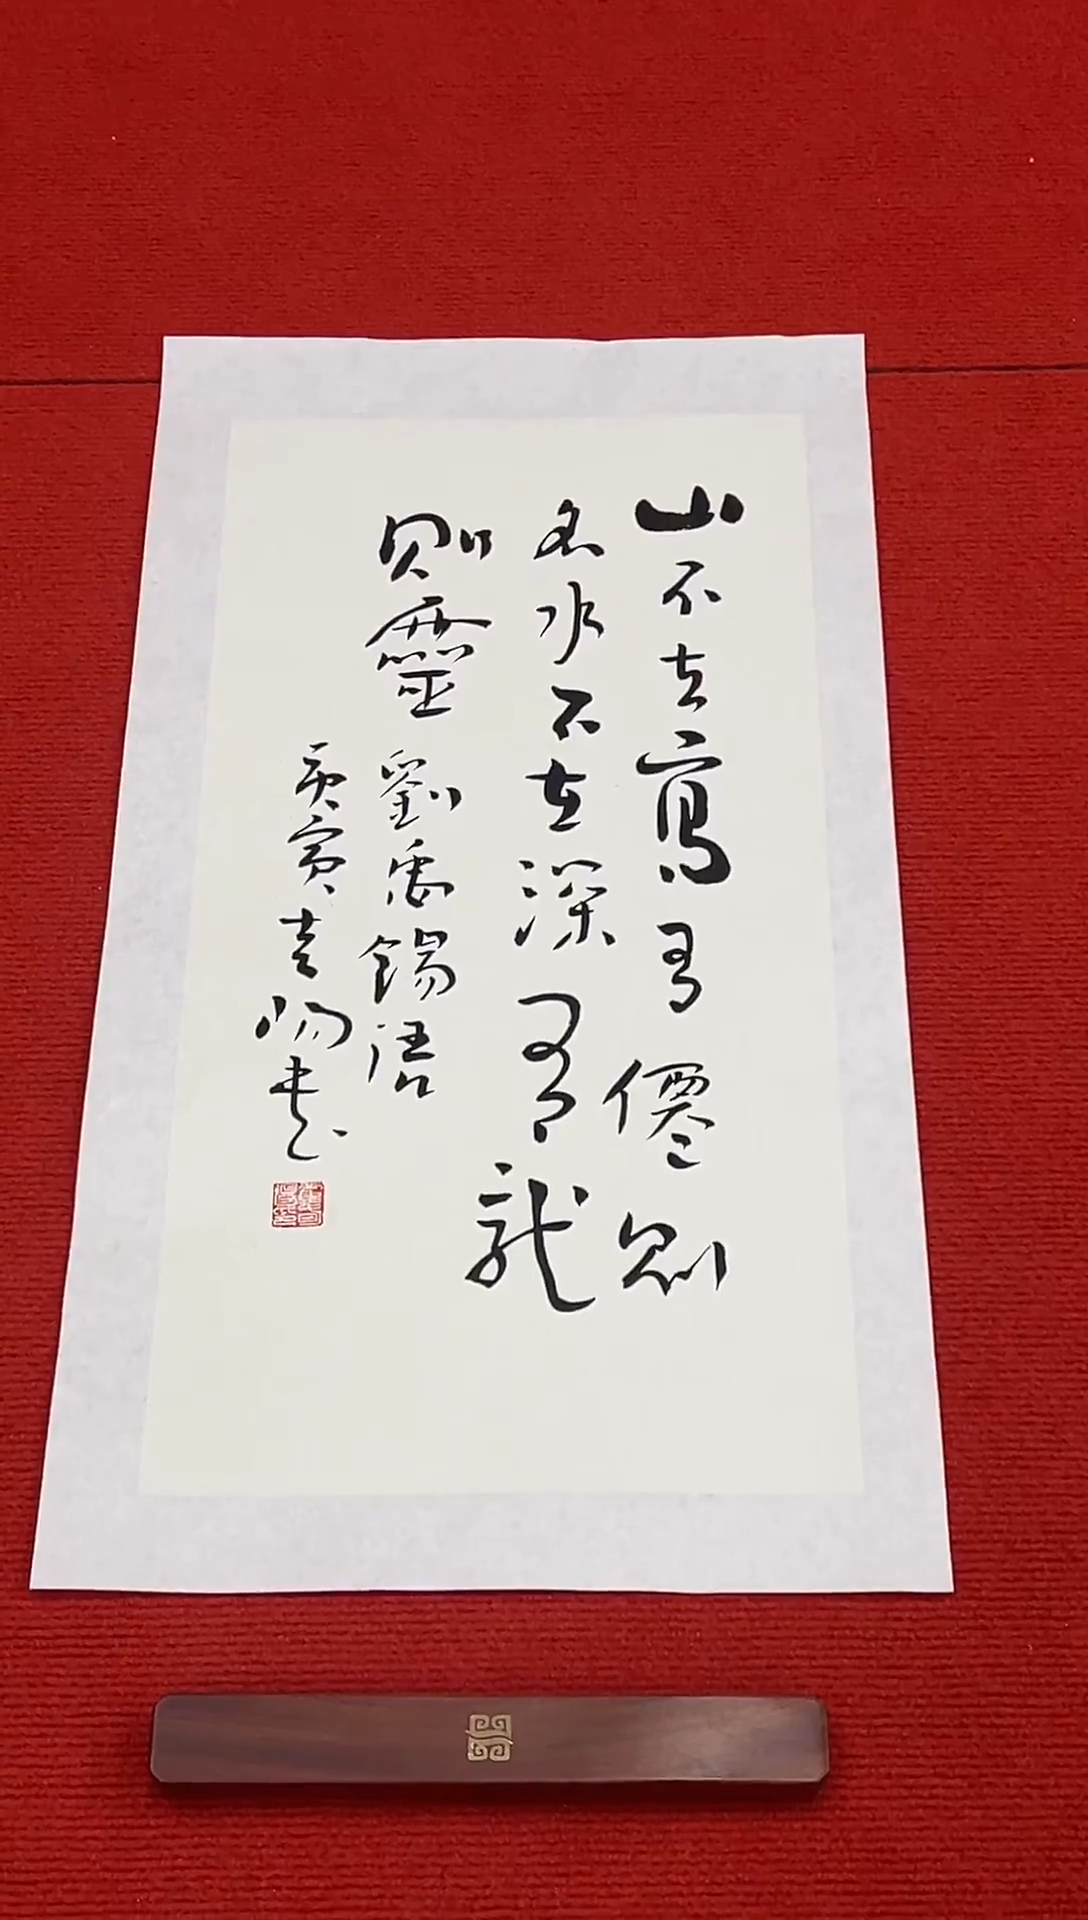 山不在高有僊則
名水不在深有龍
則靈 劉禹錫語
庚寅 書